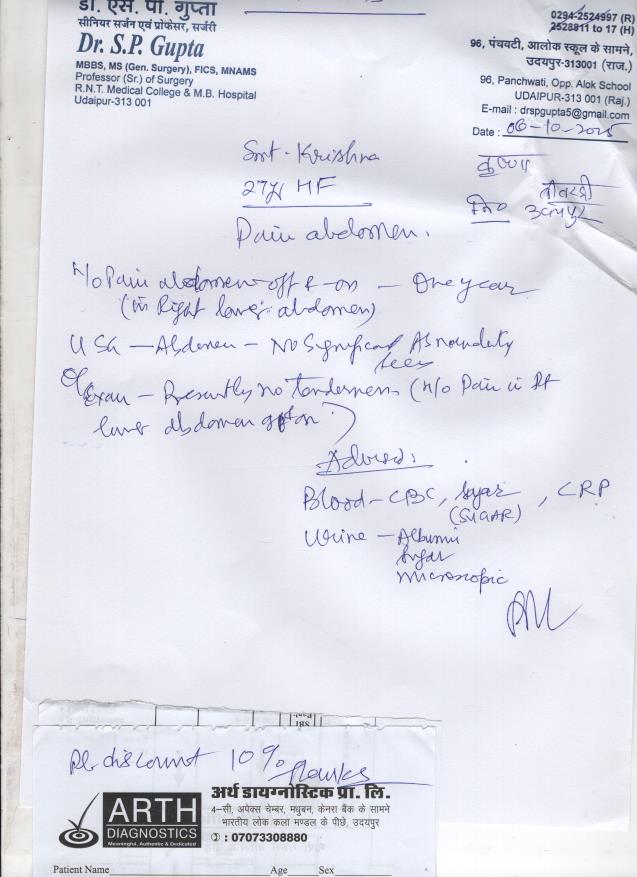 डा. एस. पी. गुप्ता
सीनियर सर्जन एवं प्रोफेसर, सर्जरी
Dr. S.P. Gupta
MBBS, MS (Gen. Surgery), FICS, MNAMS
Professor (Sr.) of Surgery
R.N.T. Medical College & M.B. Hospital
Udaipur-313 001
0294-2524997 (R)
2528811 to 17 (H)
96, पंचवटी, आलोक स्कूल के सामने,
उदयपुर-313001 (राज.)
96, Panchwati, Opp. Alok School
UDAIPUR-313 001 (Raj.)
E-mail : drspgupta5@gmail.com
Date : 06-10-2025
Smt. Krishna
कृष्णा
27y HF
उदयपुर
Pain abdomen.
H/o Pain abdomen off & on - One year
(in Right lower abdomen)
USG - Abdomen - No Significant Abnormality
seen
O/Exam - Presently no tenderness (H/o Pain in Rt
lower abdomen off & on)
Advised:
Blood - CBC, Sugar, CRP
(SUGAR)
Urine - Albumin
Sugar
Microscopic
Pl. discount 10% Thanks
ARTH
DIAGNOSTICS
Meaningful, Authentic & Dedicated
अर्थ डायग्नोस्टिक प्रा. लि.
4-सी, अपेक्स चेम्बर, मधुबन, केनरा बैंक के सामने
भारतीय लोक कला मण्डल के पीछे, उदयपुर
: 07073308880
Patient Name Age Sex